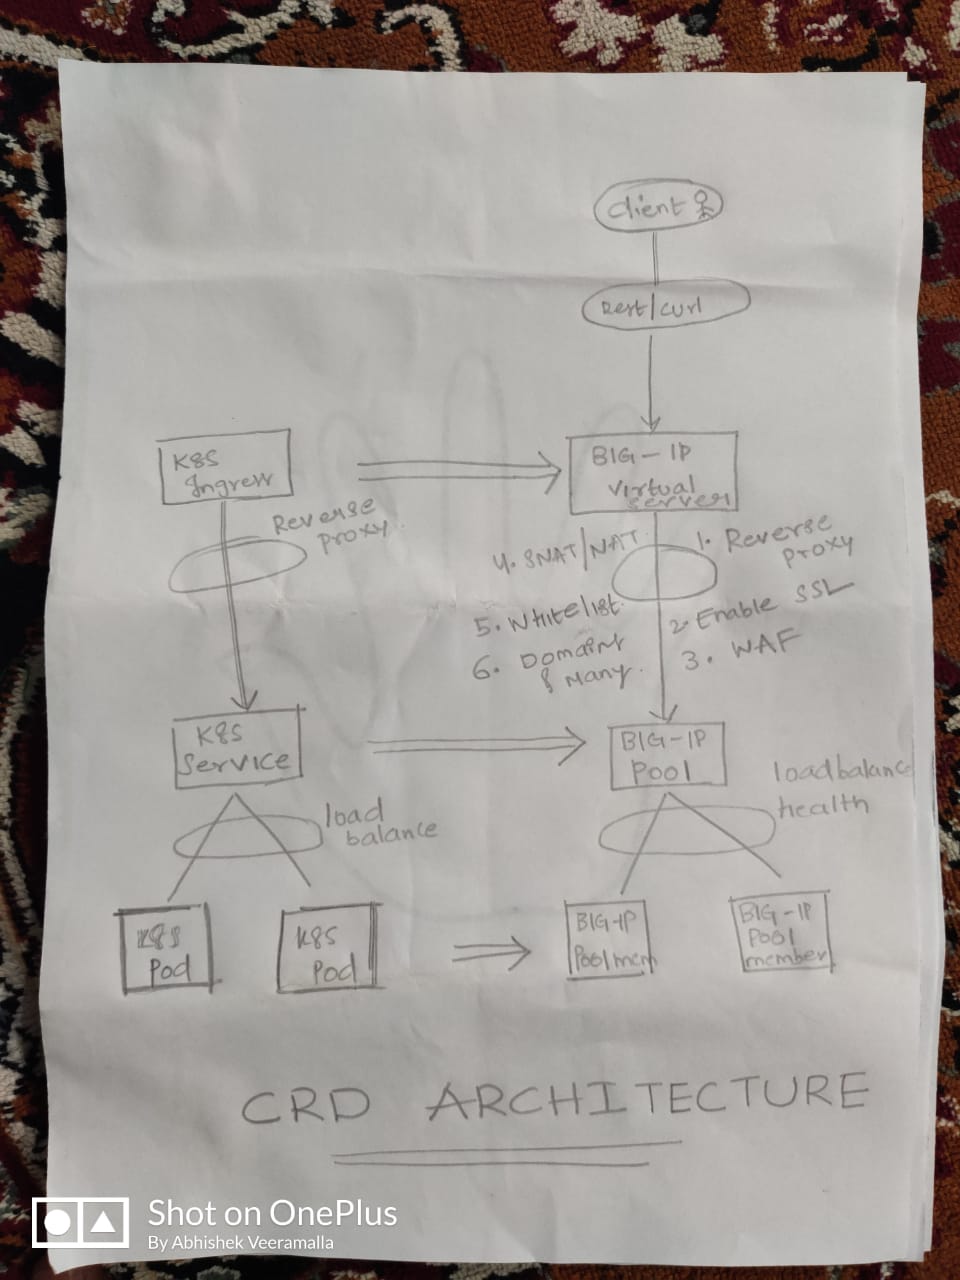 Client
Rest/curl
K8S
Ingress
BIG-IP
Virtual
server
Reverse
proxy.
4. SNAT/NAT.
1. Reverse
proxy
5. Whitelist.
2. Enable SSL
6. Domains
& Many.
3. WAF
K8S
Service
BIG-IP
Pool
load
balance
loadbalance
health
K8S
Pod
K8S
Pod
BIG-IP
Pool mem
BIG-IP
Pool
member
CRD ARCHITECTURE
Shot on OnePlus
By Abhishek Veeramalla